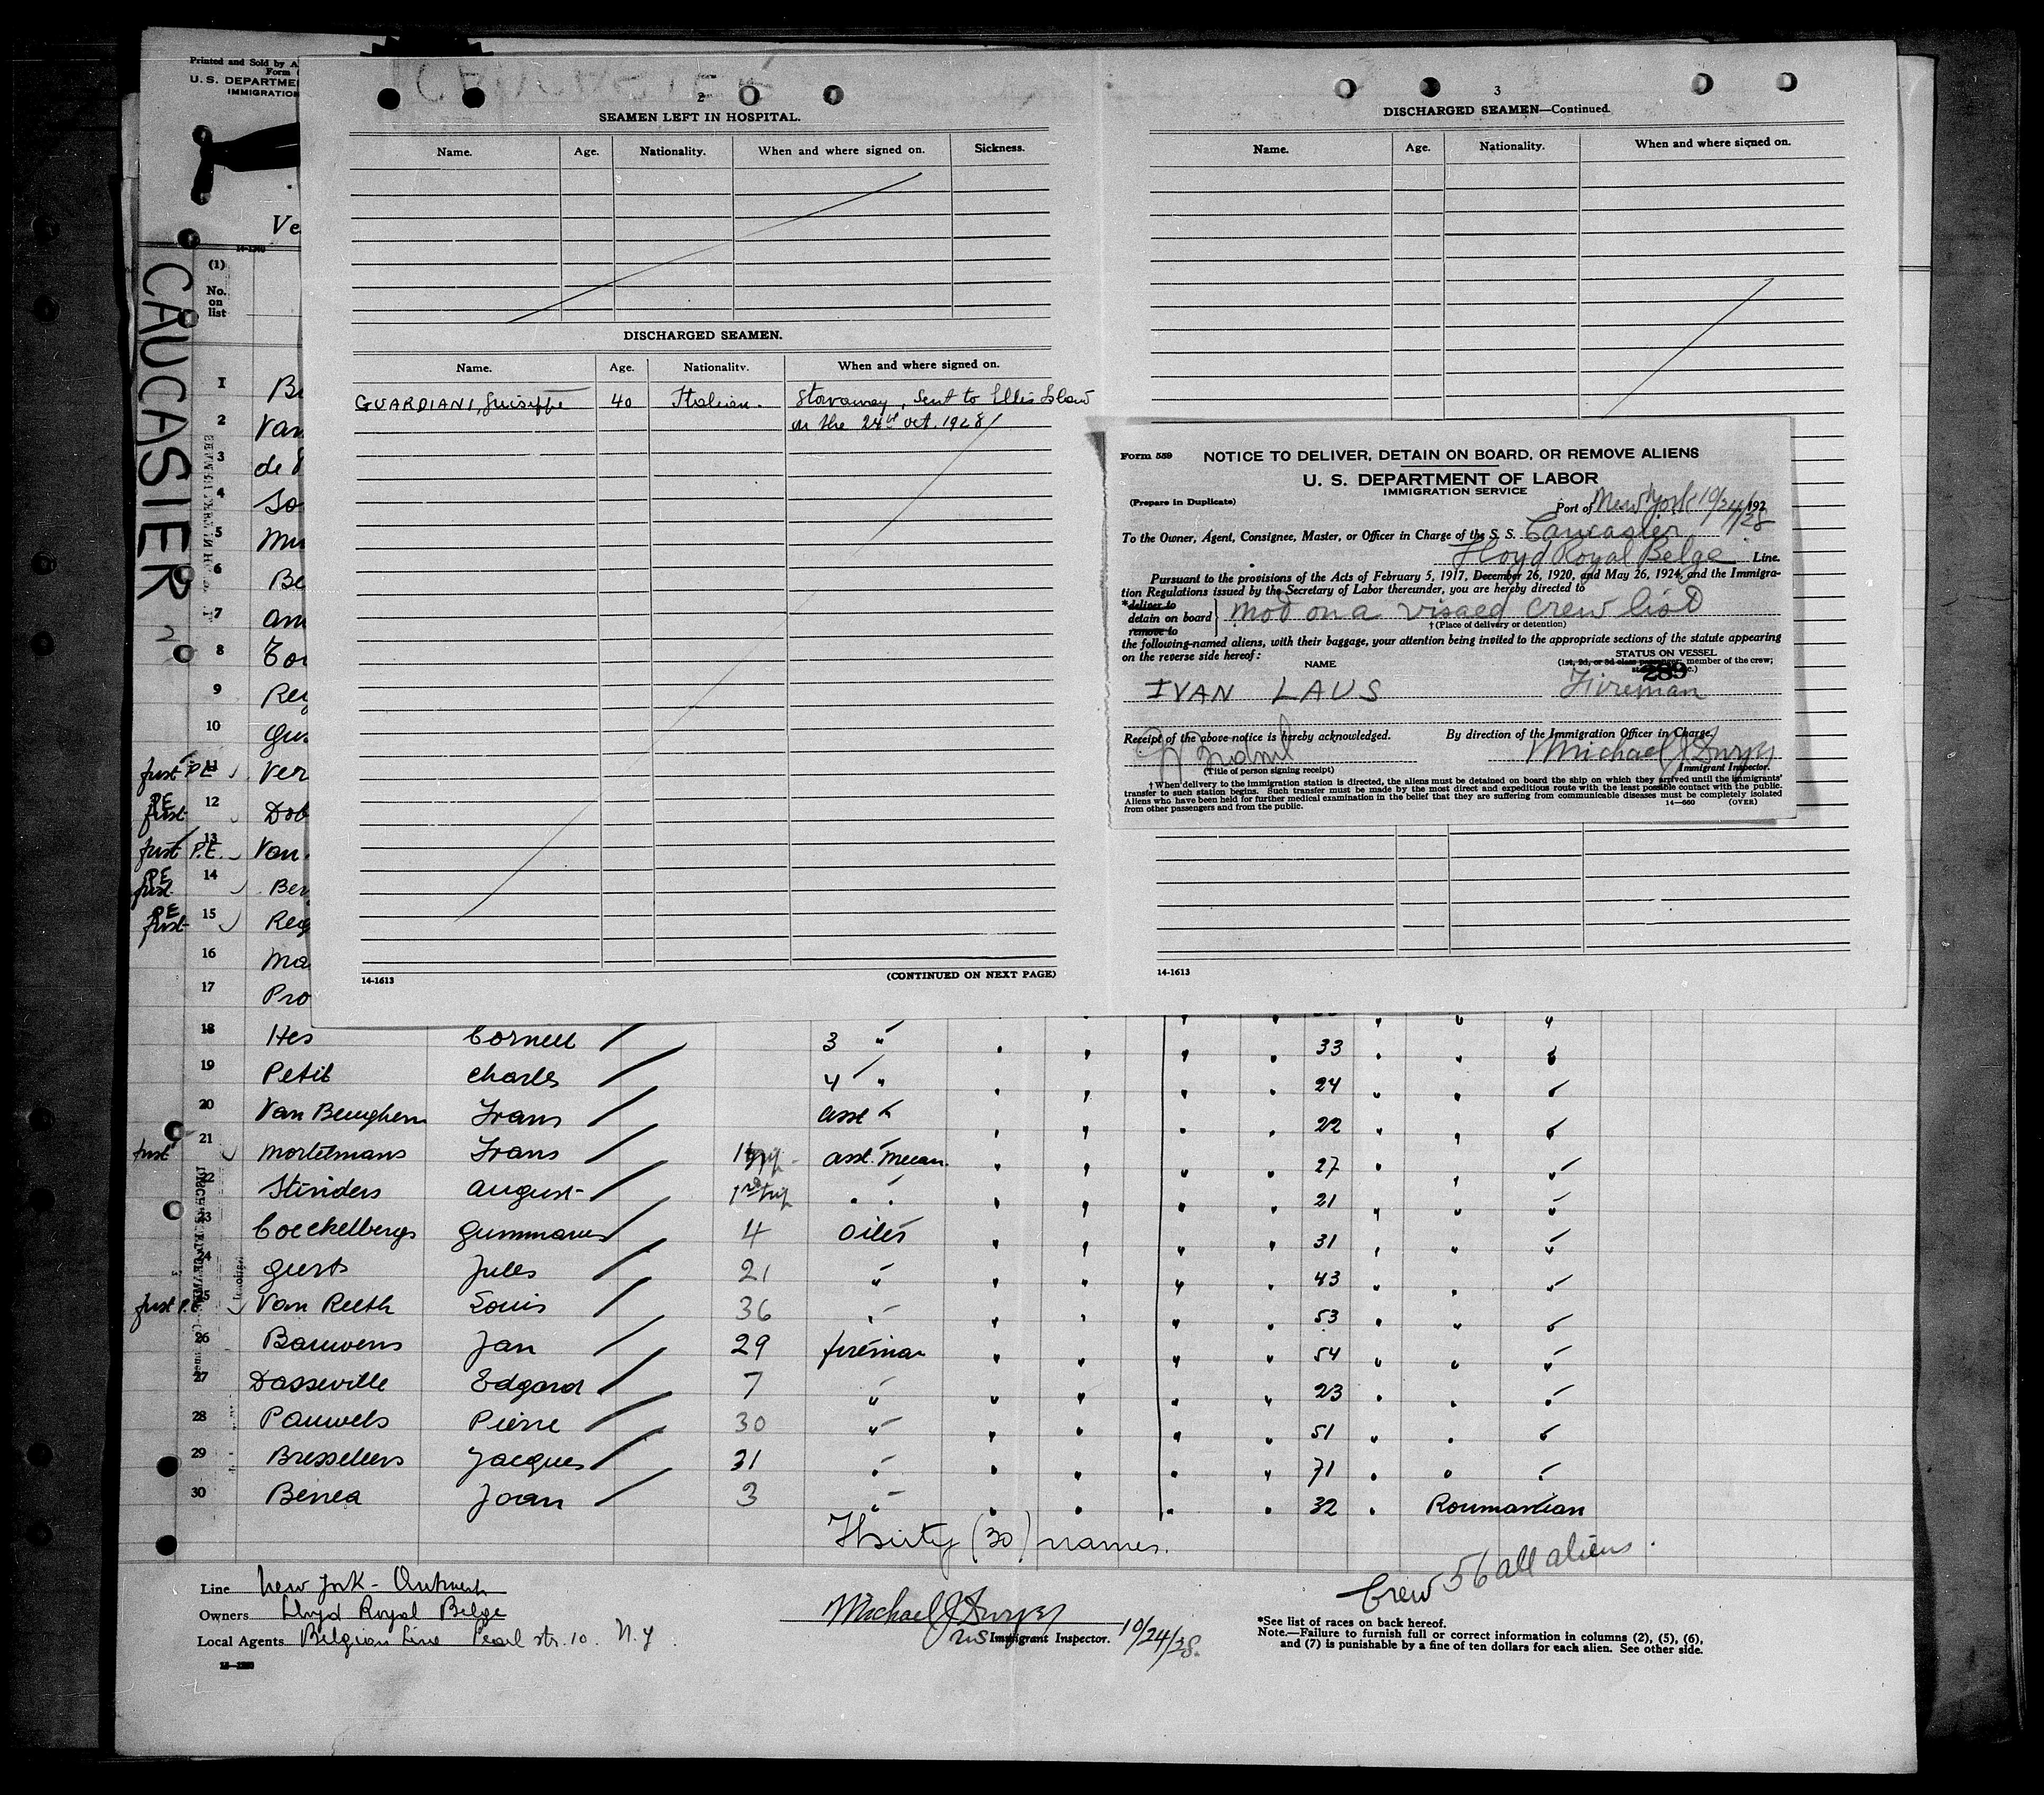 Printed and Sold by A
Form
U. S. DEPARTME
IMMIGRATION
Ve
CAUCASIER
2
(1)
No.
on
list
2
SEAMEN LEFT IN HOSPITAL.
Name. Age. Nationality. When and where signed on. Sickness.
DISCHARGED SEAMEN.
Name. Age. Nationality. When and where signed on.
GUARDIANI, Guiseppe 40 Italian. Stowaway, Sent to Ellis Island
on the 24th oct. 1928
14-1613
(CONTINUED ON NEXT PAGE)
3
DISCHARGED SEAMEN—Continued.
Name. Age. Nationality. When and where signed on.
Form 559 NOTICE TO DELIVER, DETAIN ON BOARD, OR REMOVE ALIENS
U. S. DEPARTMENT OF LABOR
IMMIGRATION SERVICE
(Prepare in Duplicate)
Port of New York 10/24/28 192
To the Owner, Agent, Consignee, Master, or Officer in Charge of the S. S. Caucasier
Lloyd Royal Belge Line.
Pursuant to the provisions of the Acts of February 5, 1917, December 26, 1920, and May 26, 1924, and the Immigra-
tion Regulations issued by the Secretary of Labor thereunder, you are hereby directed to
*deliver to
detain on board
remove to
not on a visaed crew list
†(Place of delivery or detention)
the following-named aliens, with their baggage, your attention being invited to the appropriate sections of the statute appearing
on the reverse side hereof:
NAME
STATUS ON VESSEL
(1st, 2d, or 3d class passenger; member of the crew;
289
IVAN LAUS Fireman
Receipt of the above notice is hereby acknowledged. By direction of the Immigration Officer in Charge,
Michael J. Dwyer
(Title of person signing receipt) Immigrant Inspector.
†When delivery to the immigration station is directed, the aliens must be detained on board the ship on which they arrived until the immigrants'
transfer to such station begins. Such transfer must be made by the most direct and expeditious route with the least possible contact with the public.
Aliens who have been held for further medical examination in the belief that they are suffering from communicable diseases must be completely isolated
from other passengers and from the public. 14—660 (OVER)
14-1613
1 Be
2 Van
3 de
4 So
5 Mu
6 Be
7 am
8 Cor
9 Rey
10 Gus
first P.E. 11 Ver
P.E. first 12 Dob
first P.E. 13 Van
P.E. first 14 Ber
P.E. first 15 Reg
16 Ma
17 Pro
18 Hes Cornell 3 " 33
19 Petit Charles 4 " 24
20 Van Beughem Frans asst 22
first 21 Mortelmans Frans asst. mecan. 27
22 Stinders August 1st trip 21
23 Coeckelbergs Gummarus 4 oiler 31
24 Geerts Jules 21 " 43
first P.E. 25 Van Reeth Louis 36 " 53
26 Bauwens Jan 29 fireman 54
27 Dasseville Edgard 7 " 23
28 Pauwels Pierre 30 " 51
29 Bresseleers Jacques 31 " 71
30 Benea Joan 3 " 32 Roumanian
Thirty (30) names.
Crew 56 all aliens.
Line New York - Antwerp
Owners Lloyd Royal Belge
Local Agents Belgian Line Pearl str. 10. N.Y
Michael J Dwyer
US Immigrant Inspector. 10/24/28.
*See list of races on back hereof.
Note.—Failure to furnish full or correct information in columns (2), (5), (6),
and (7) is punishable by a fine of ten dollars for each alien. See other side.